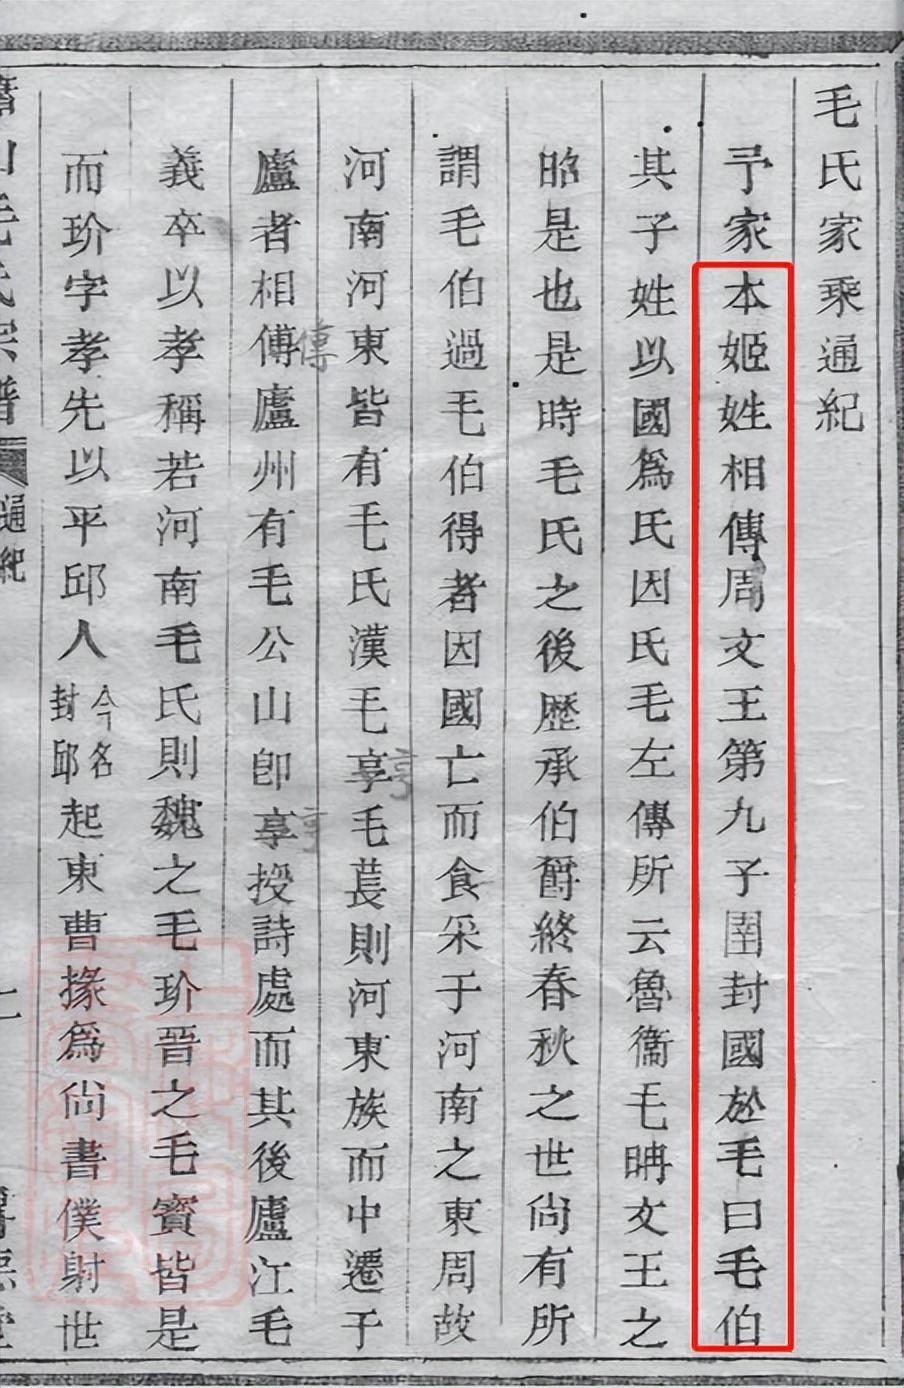 毛氏家乘通紀
予家本姬姓相傳周文王第九子圉封國於毛曰毛伯
其子姓以國爲氏因氏毛左傳所云魯衞毛聃文王之
昭是也是時毛氏之後歷承伯爵終春秋之世尙有所
謂毛伯過毛伯得者因國亡而食采于河南之東周故
河南河東皆有毛氏漢毛享毛萇則河東族而中遷于
亨
廬者相傅廬州有毛公山卽享授詩處而其後廬江毛
傳
亨
義卒以孝稱若河南毛氏則魏之毛玠晉之毛寶皆是
而玠字孝先以平邱人今名封邱起東曹掾爲尙書僕射世
蕭山毛氏宗譜
通紀